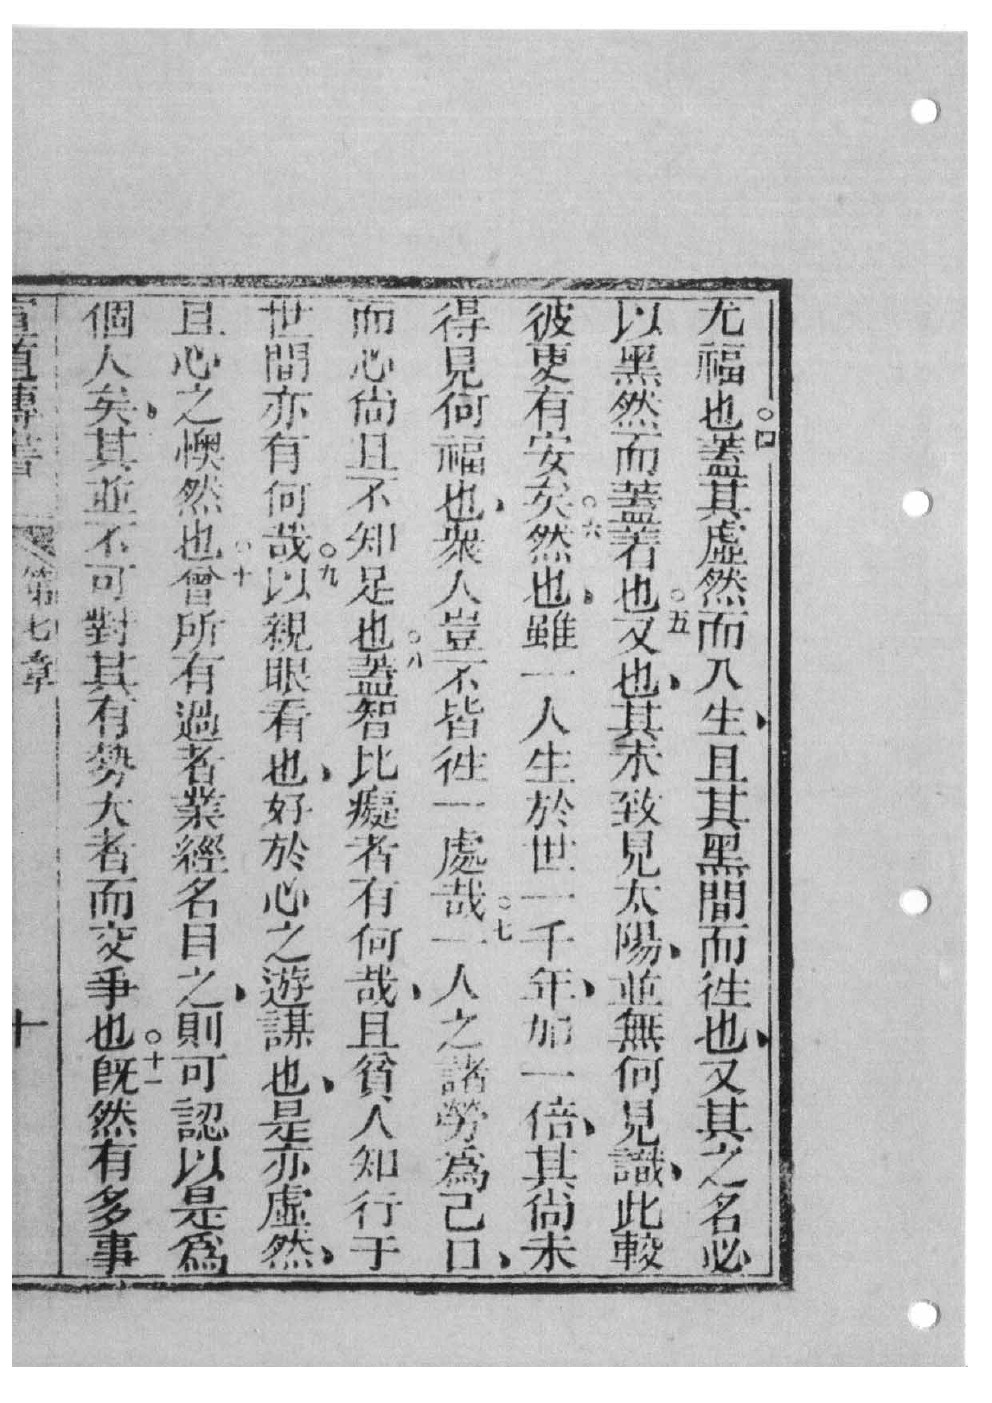 尤福也○四蓋其虛然而入生且其黑間而徃也又其之名必
以黑然而蓋著也○五又也其未致見太陽並無何見識此較
彼更有安矣○六然也雖一人生於世一千年加一倍其尚未
得見何福也衆人豈不皆徃一處哉○七一人之諸勞爲己口
而心尚且不知足也○八蓋智比癡者有何哉且貧人知行于
世間亦有何哉○九以親眼看也好於心之遊謀也是亦虛然
且心之懊然也○十曾所有過者業經名目之則可認以是爲
個人矣其並不可對其有勢大者而交爭也○十一旣然有多事
第七章 十